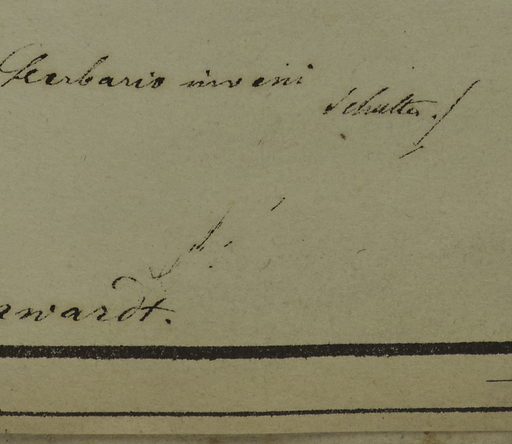 Herbario inveni
Schultes.
nwardt.